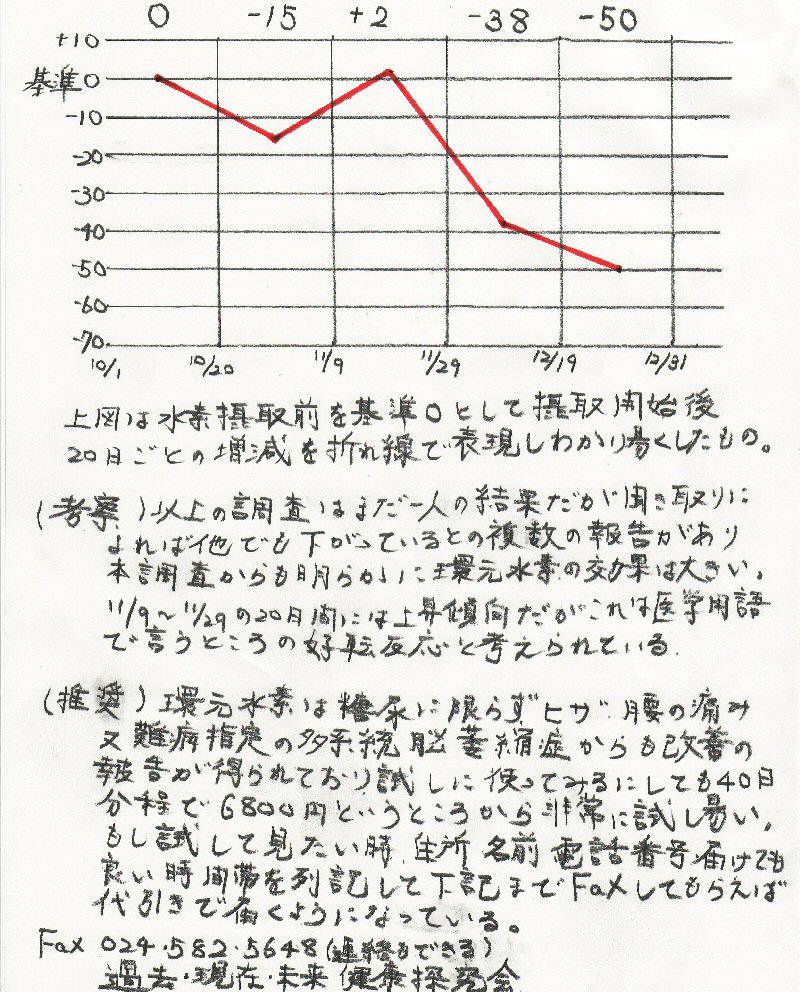 0 -15 +2 -38 -50
+10
基準0
-10
-20
-30
-40
-50
-60
-70
10/1 10/20 11/9 11/29 12/19 12/31
上図は水素摂取前を基準0として摂取開始後
20日ごとの増減を折れ線で表現しわかり易くしたもの。
(考察)以上の調査はまだ一人の結果だが聞き取りに
よれば他でも下がっているとの複数の報告があり
本調査からも明らかに環元水素の効果は大きい。
11/9〜11/29の20日間には上昇傾向だがこれは医学用語
で言うところの好転反応と考えられている.
(推奨)環元水素は糖尿に限らずヒザ.腰の痛み
又難病指定の多系統脳萎縮症からも改善の
報告が得られており試しに使ってみるにしても40日
分程で6800円というところから非常に試し易い。
もし試して見たい時.住所 名前 電話番号届けても
良い時間帯を列記して下記までFaxしてもらえば
代引きで届くようになっている。
Fax 024・582・5648(連絡もできる)
過去・現在・未来 健康探究会